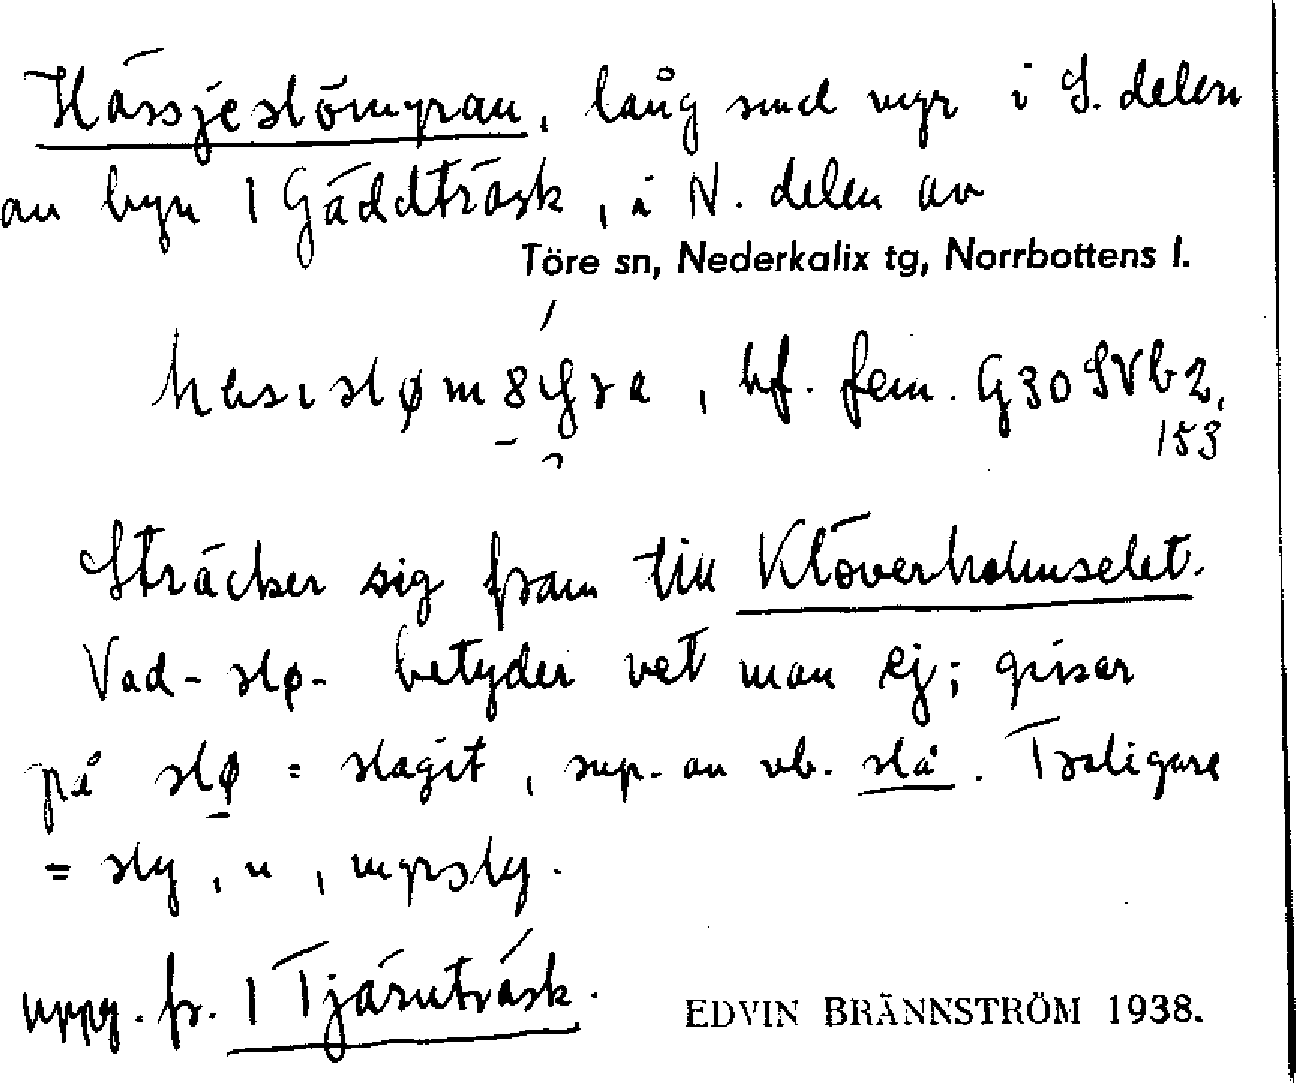 Hässjeslömyran, lång smal myr i S. delen
av byn 1 Gäddträsk, i N. delen av
Töre sn, Nederkalix tg, Norrbottens l.
bf. fem. G30 SVb2,
153
Sträcker sig fram till Klöverholmselet.
Vad - slø - betyder vet man ej; gissar
på slø = slagit, sup. av vb. slå. Troligare
= sly, n, myrsly.
uppg. fr. 1 Tjäruträsk.
EDVIN BRÄNNSTRÖM 1938.